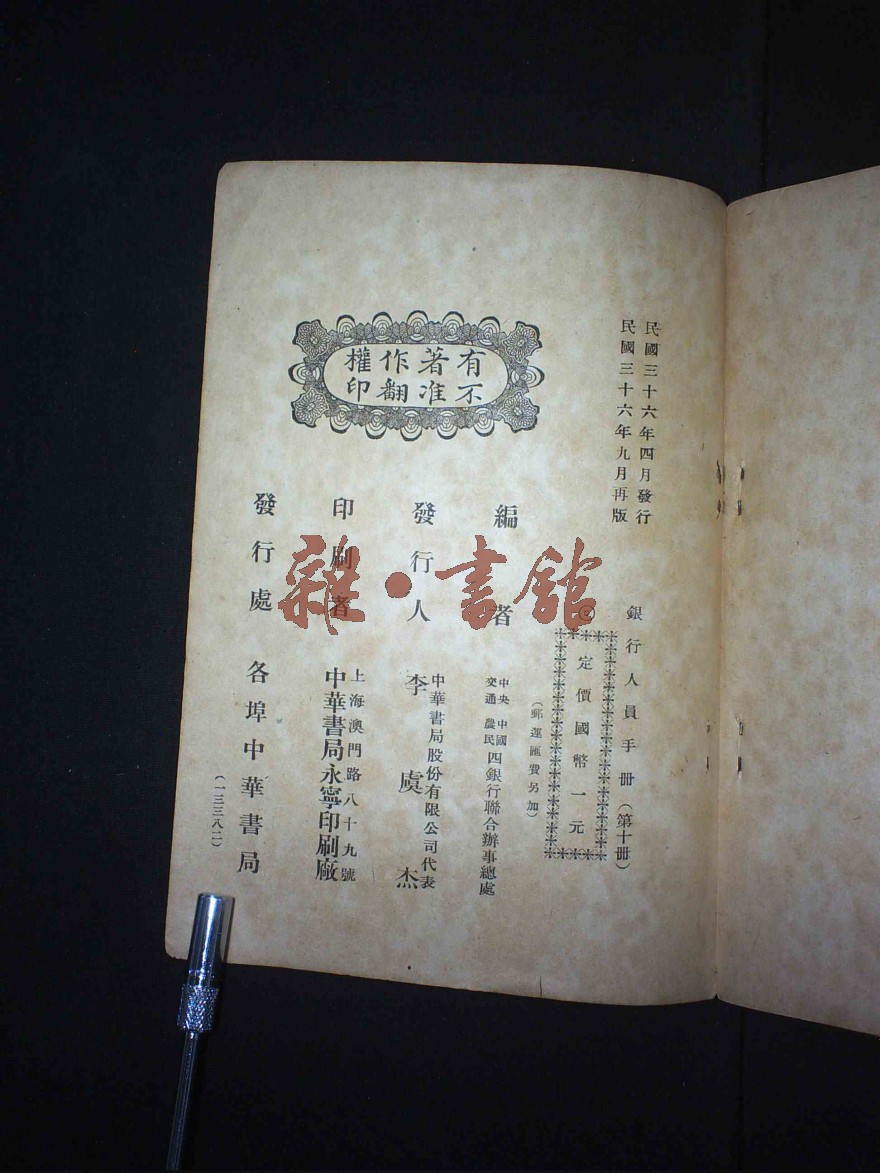 民國三十六年四月發行
民國三十六年九月再版
銀行人員手冊（第十冊）
定價國幣一元
（郵運匯費另加）
編者
中央 中國
交通 農民
四銀行聯合辦事總處
發行人
中華書局股份有限公司代表
李虞杰
印刷者
上海澳門路八十九號
中華書局永寧印刷廠
發行處
各埠中華書局
（一三三八二）
有著作權
不准翻印
雜·書館